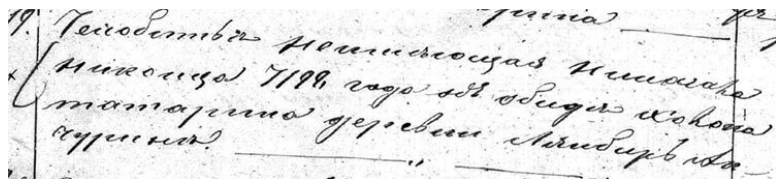 рина
19. Челобитья неимѣющая ни начала
ни конца 7199 года объ обидѣ
татарина деревни Лямбирь Ак-
чурина. „